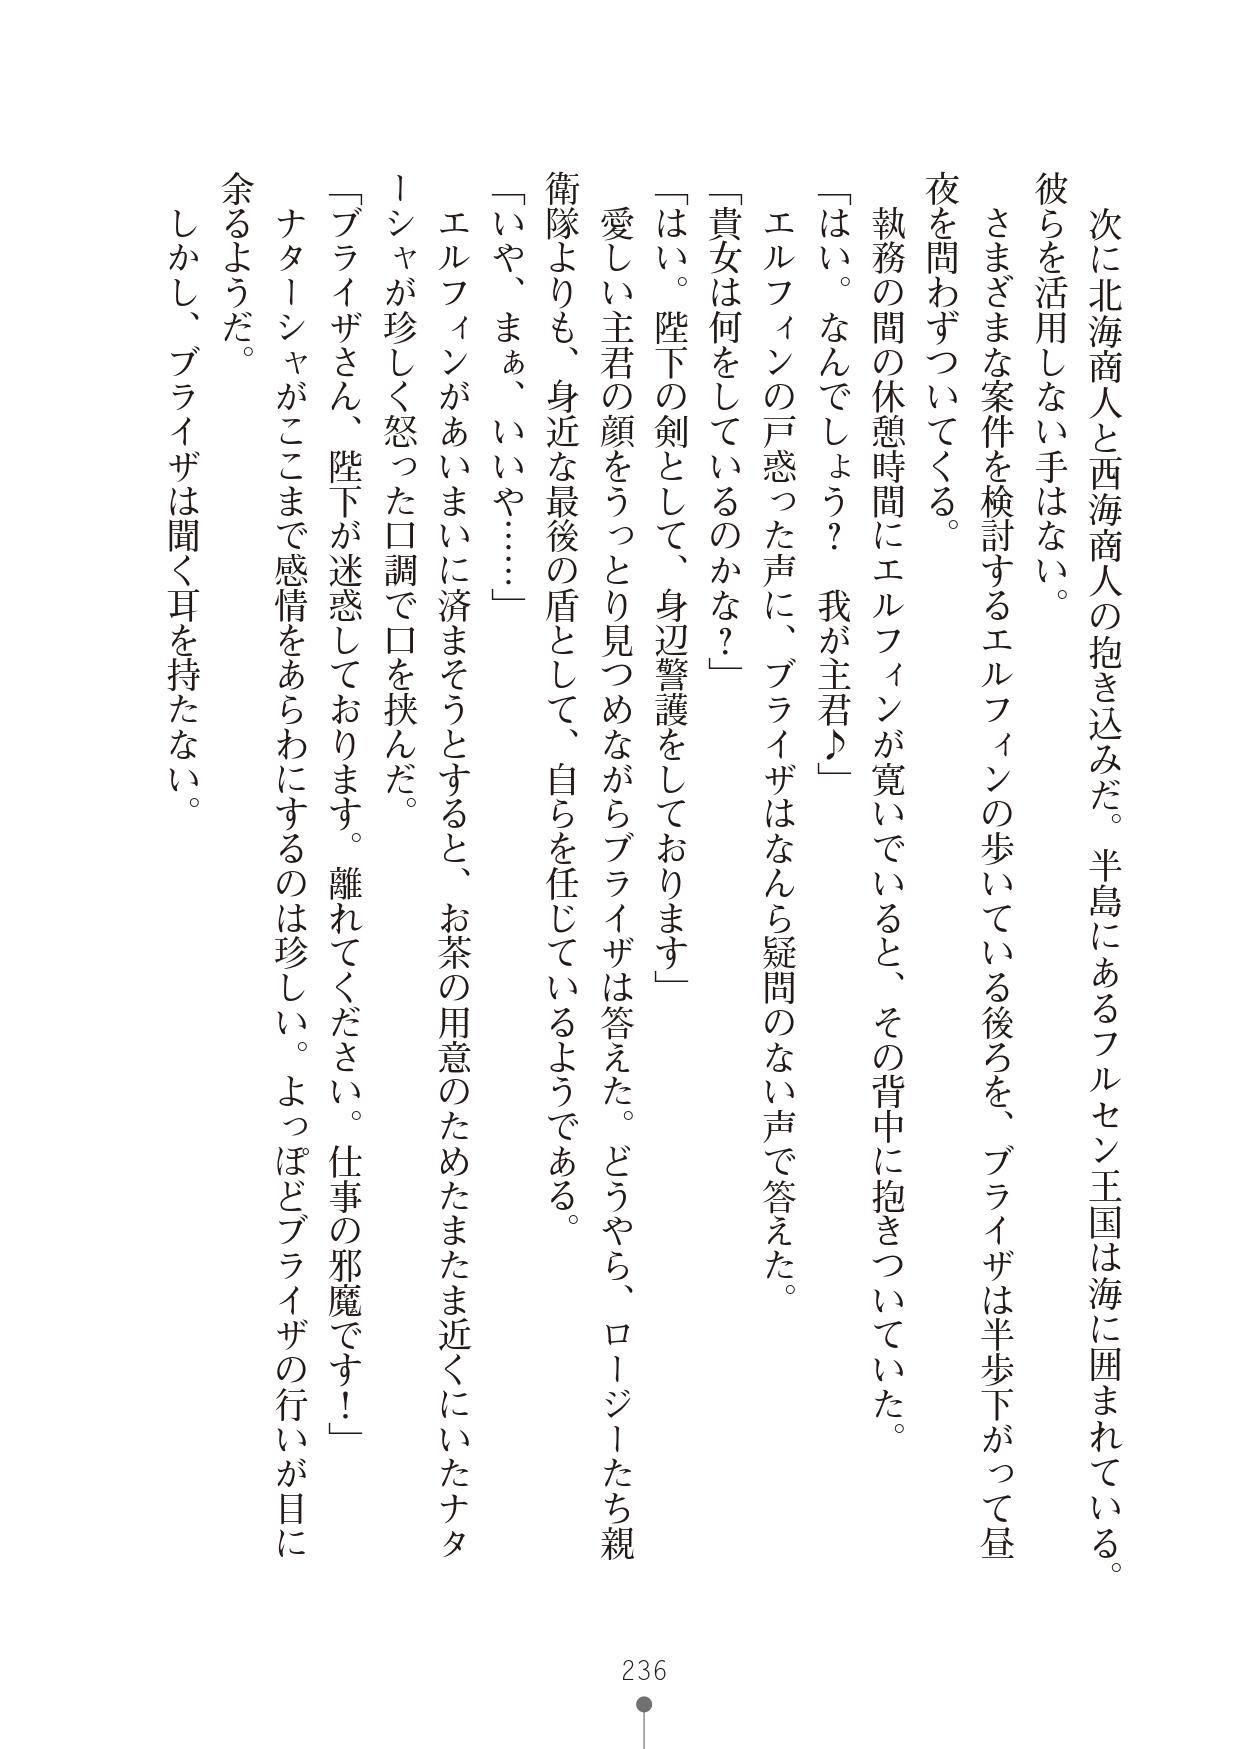 次に北海商人と西海商人の抱き込みだ。半島にあるフルセン王国は海に囲まれている。
彼らを活用しない手はない。
　さまざまな案件を検討するエルフィンの歩いている後ろを、ブライザは半歩下がって昼
夜を問わずついてくる。
　執務の間の休憩時間にエルフィンが寛いでいると、その背中に抱きついていた。
「はい。なんでしょう？　我が主君♪」
　エルフィンの戸惑った声に、ブライザはなんら疑問のない声で答えた。
「貴女は何をしているのかな？」
「はい。陛下の剣として、身辺警護をしております」
　愛しい主君の顔をうっとり見つめながらブライザは答えた。どうやら、ロージーたち親
衛隊よりも、身近な最後の盾として、自らを任じているようである。
「いや、まぁ、いいや……」
　エルフィンがあいまいに済まそうとすると、お茶の用意のためたまたま近くにいたナタ
ーシャが珍しく怒った口調で口を挟んだ。
「ブライザさん、陛下が迷惑しております。離れてください。仕事の邪魔です！」
　ナターシャがここまで感情をあらわにするのは珍しい。よっぽどブライザの行いが目に
余るようだ。
　しかし、ブライザは聞く耳を持たない。
236